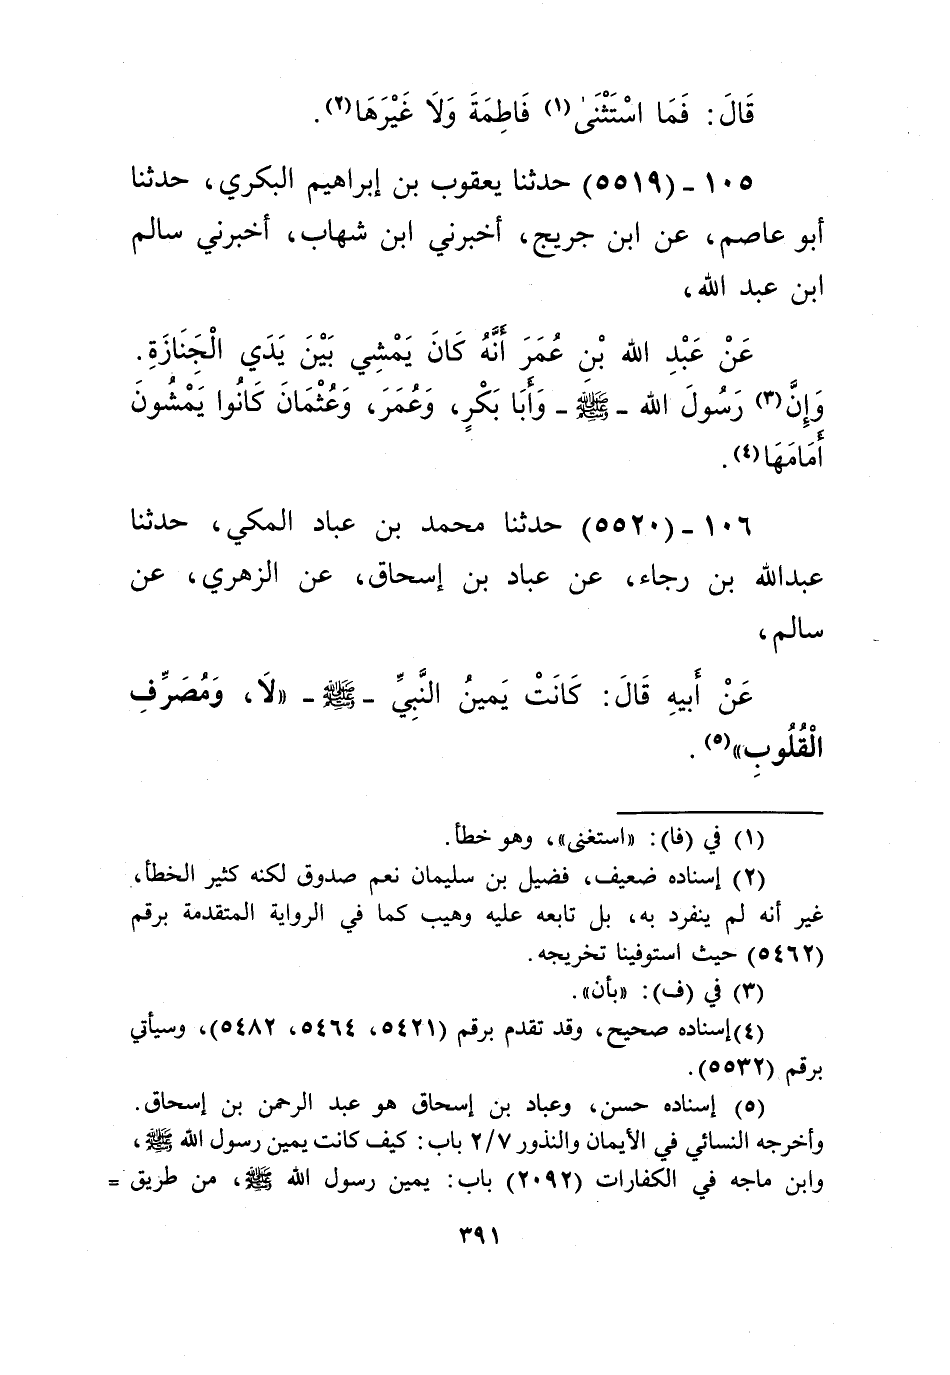 قَالَ: فَمَا اسْتَثْنَىٰ(١) فَاطِمَةَ وَلَا غَيْرَهَا(٢).
١٠٥ ـ (٥٥١٩) حدثنا يعقوب بن إبراهيم البكري، حدثنا
أبو عاصم، عن ابن جريج، أخبرني ابن شهاب، أخبرني سالم
ابن عبد الله،
عَنْ عَبْدِ الله بْنِ عُمَرَ أَنَّهُ كَانَ يَمْشِي بَيْنَ يَدَي الْجَنَازَةِ.
وَإِنَّ(٣) رَسُولَ الله ـ ﷺ ـ وَأَبَا بَكْرٍ، وَعُمَرَ، وَعُثْمَانَ كَانُوا يَمْشُونَ
أَمَامَهَا(٤).
١٠٦ ـ (٥٥٢٠) حدثنا محمد بن عباد المكي، حدثنا
عبدالله بن رجاء، عن عباد بن إسحاق، عن الزهري، عن
سالم،
عَنْ أَبِيهِ قَالَ: كَانَتْ يَمِينُ النَّبِيِّ ـ ﷺ ـ «لَا، وَمُصَرِّفِ
الْقُلُوبِ»(٥).
(١) في (فا): «استغنى»، وهو خطأ.
(٢) إسناده ضعيف، فضيل بن سليمان نعم صدوق لكنه كثير الخطأ،
غير أنه لم ينفرد به، بل تابعه عليه وهيب كما في الرواية المتقدمة برقم
(٥٤٦٢) حيث استوفينا تخريجه.
(٣) في (ف): «بأن».
(٤) إسناده صحيح، وقد تقدم برقم (٥٤٢١، ٥٤٦٤، ٥٤٨٢)، وسيأتي
برقم (٥٥٣٢).
(٥) إسناده حسن، وعباد بن إسحاق هو عبد الرحمن بن إسحاق.
وأخرجه النسائي في الأيمان والنذور ٢/٧ باب: كيف كانت يمين رسول الله ﷺ،
وابن ماجه في الكفارات (٢٠٩٢) باب: يمين رسول الله ﷺ، من طريق =
٣٩١